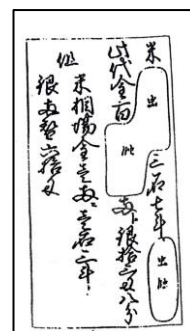 米 出 三石七斗 出貼
此代金百 貼 両ト銀拾六匁八分
但 米相場金壱両ニ壱石二斗
銀両替六拾匁